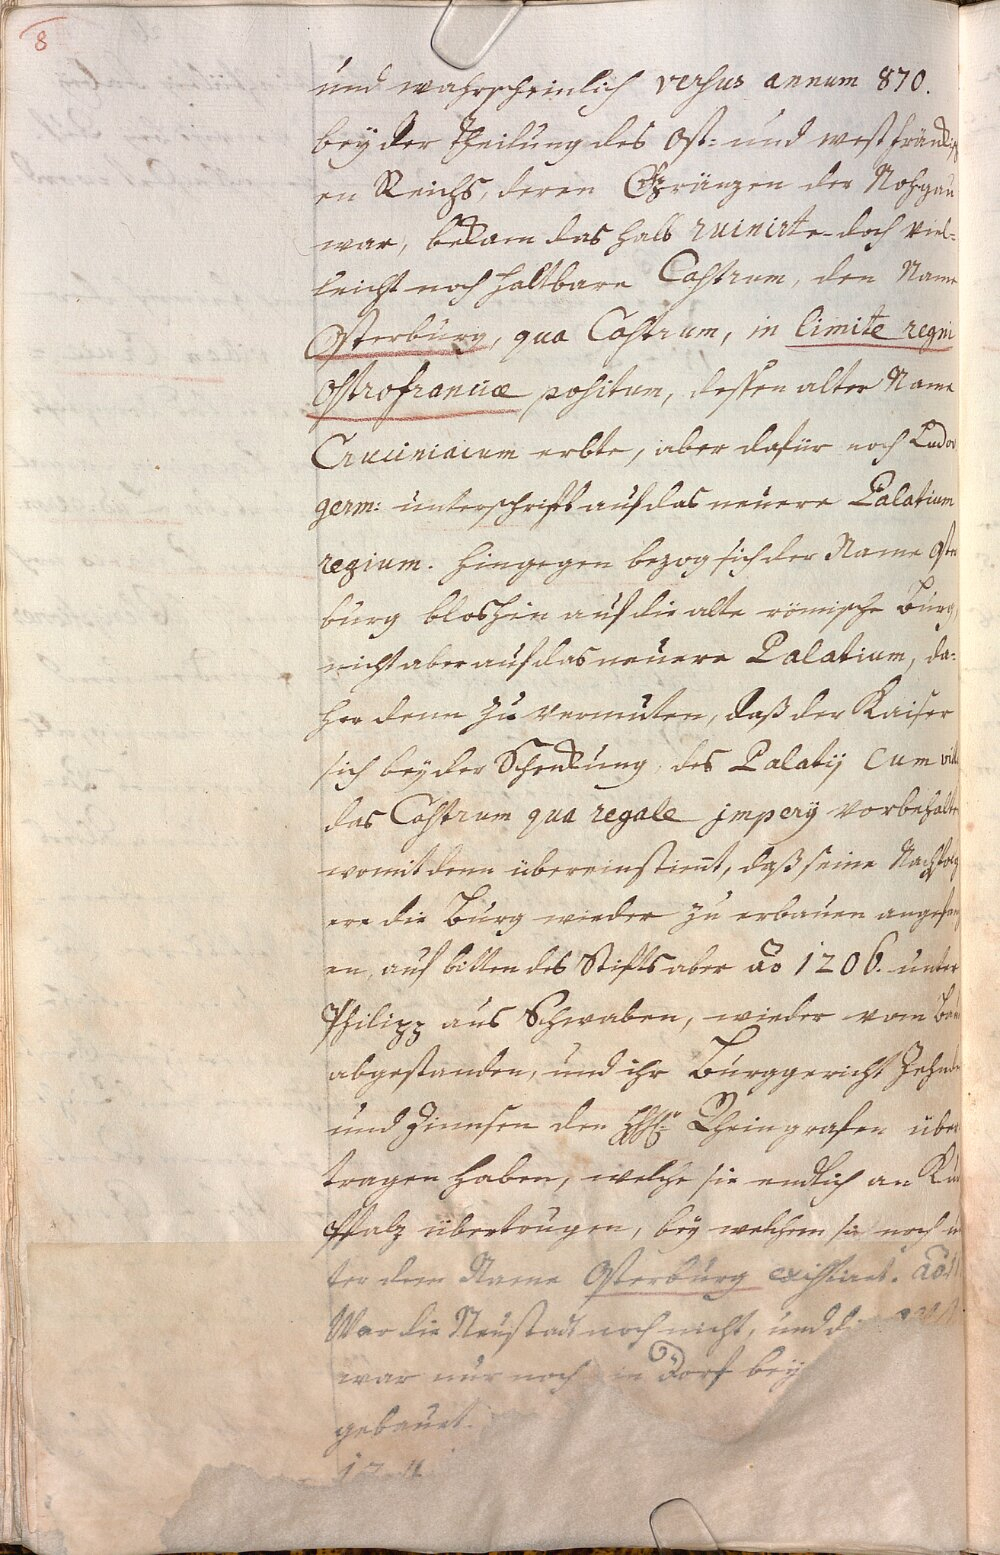 8
und wahrscheinlich versus annum 870.
bey der Theilung des Ost- und westfränkisch
en Reichs, deren Gränzen der Nohgau
war, bekam das halb ruinirte doch viel=
leicht noch haltbare Castrum, den Name
Osterburg, qua Castrum, in limite regni
Ostrofranciæ positum, dessen alter Name
Cruciniacum erbte, aber dafür noch Ludov
germ: unterschrifft auf das neuere Palatium
regium. hingegen bezog sich der Name Oster
burg bloshin auf die alte römische Burg,
nicht aber auf das neuere Palatium, da=
her denn zu vermuten, daß der Kaiser
sich bey der Schenkung, des Palatij cum villa
das Castrum qua regale jmperij vorbehalte
womit denn übereinstimt, daß seine Nachfolg
ere die Burg wieder zu erbauen angefang
en, auf bitten des Stifts aber ao 1206. unter
Philipp aus Schwaben, wieder vom Bau
abgestanden, und ihr Burggericht Zehnde
und Zinnsen den Rheingrafen über
tragen haben, welche sie endlich an Kur
Pfalz übertrugen, bey welchem sie noch un
ter dem Name Osterburg existiret. ao
War die Neustadt noch nicht, und di
war nur noch ein Dorf bey
gebauet.